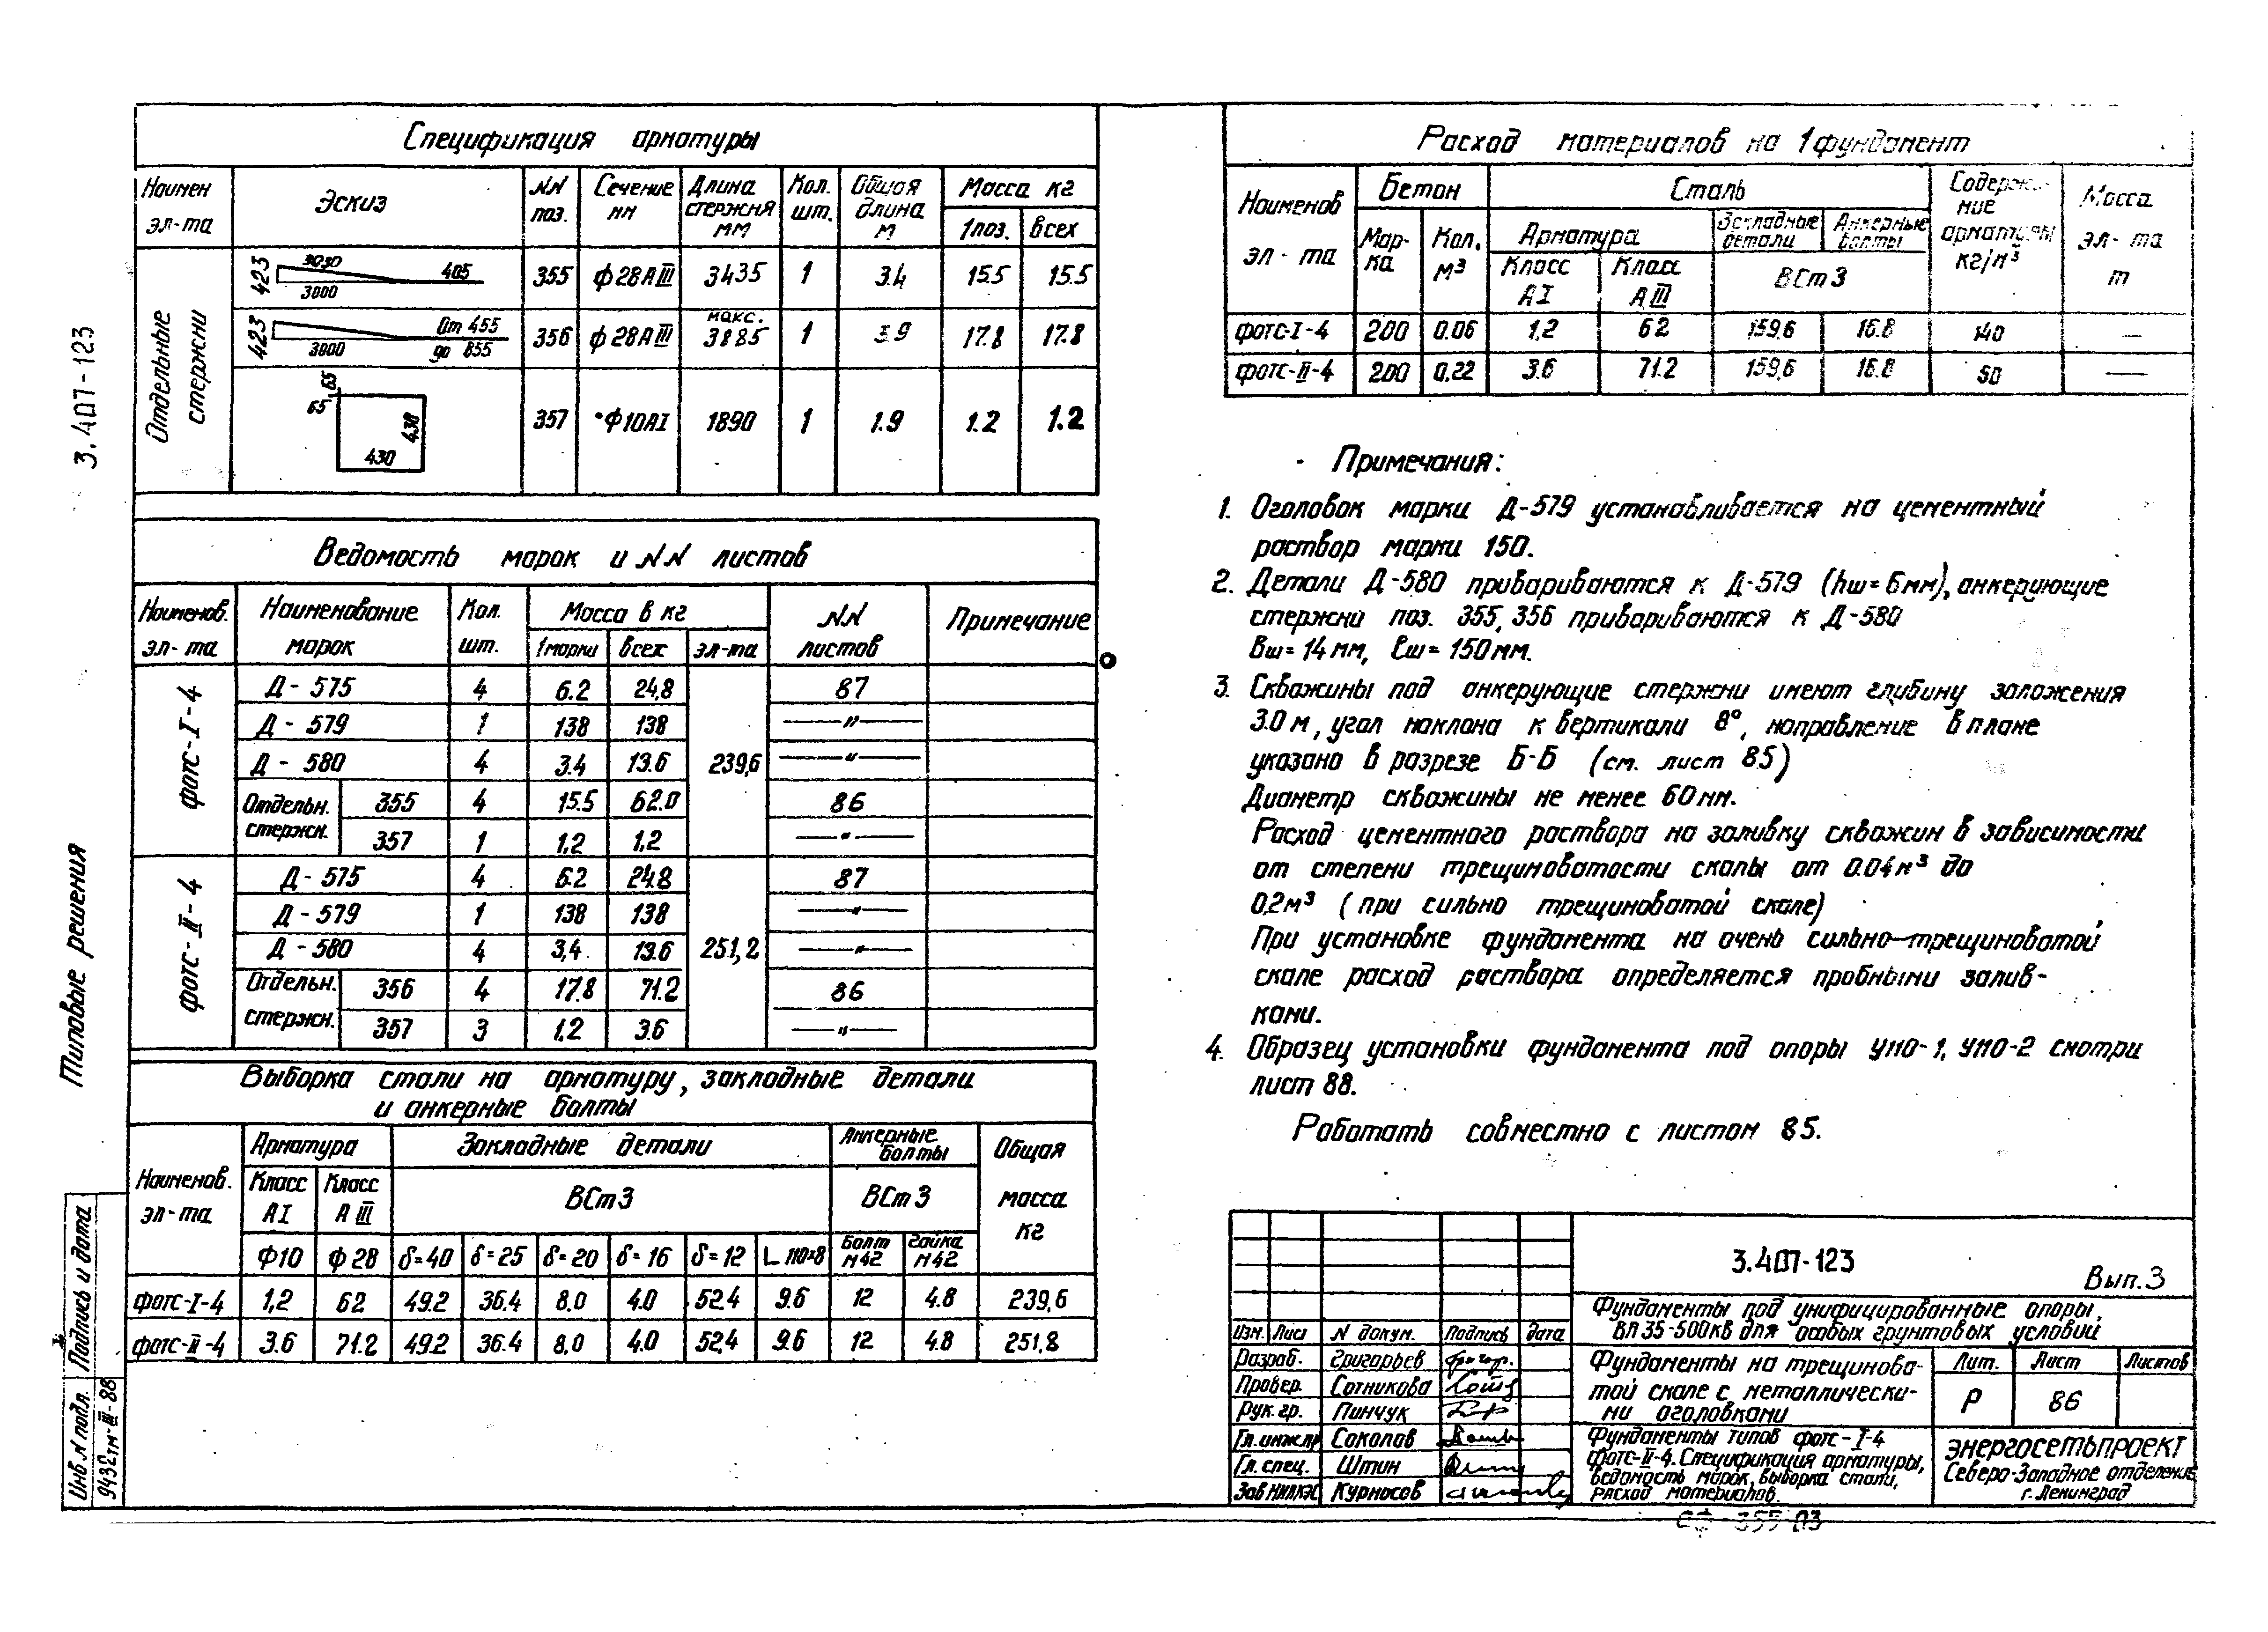 3.407-123
Типовые решения
Инв.N подл. Подпись и дата
9432тм-III-88
Спецификация арматуры
Наимен эл-та Эскиз NN поз. Сечение мм Длина стержня мм Кол. шт. Общая длина м Масса кг
1 поз. всех
Отдельные стержни
423 3030 405 3000 355 ф28АIII 3435 1 3.4 15.5 15.5
423 От 455 3000 до 855 356 ф28АIII макс. 3885 1 3.9 17.8 17.8
65 65 430 430 357 Ф10АI 1890 1 1.9 1.2 1.2
Ведомость марок и NN листов
Наименов. эл-та Наименование марок Кол. шт. Масса в кг NN листов Примечание
1 марки всех эл-та
ФОТС-I-4
Д-575 4 6.2 24,8 87
Д-579 1 138 138 —"—
Д-580 4 3.4 13.6 239,6 —"—
Отдельн. стержн. 355 4 15.5 62.0 86
357 1 1,2 1,2 —"—
ФОТС-II-4
Д-575 4 6.2 24.8 87
Д-579 1 138 138 —"—
Д-580 4 3,4 13.6 251,2 —"—
Отдельн. стержн. 356 4 17.8 71.2 86
357 3 1,2 3.6 —"—
Выборка стали на арматуру, закладные детали
и анкерные болты
Наименов. эл-та Арматура Закладные детали Анкерные болты Общая масса кг
Класс АI Класс АIII ВСт3 ВСт3
Ф10 ф28 δ=40 δ=25 δ=20 δ=16 δ=12 L 110×8 Болт М42 Гайка М42
ФОТС-I-4 1,2 62 49.2 36.4 8.0 4.0 52.4 9.6 12 4.8 239,6
ФОТС-II-4 3.6 71.2 49.2 36.4 8,0 4.0 52,4 9.6 12 4.8 251,8
Расход материалов на 1 фундамент
Наименов эл-та Бетон Сталь Содержание арматуры кг/м³ Масса эл-та т
Марка Кол. м³ Арматура Закладные детали Анкерные болты
Класс АI Класс АIII ВСт3
ФОТС-I-4 200 0.06 1,2 62 159,6 16.8 140 —
ФОТС-II-4 200 0,22 3.6 71.2 159,6 16.8 50 —
Примечания:
1. Оголовок марки Д-579 устанавливается на цементный
раствор марки 150.
2. Детали Д-580 привариваются к Д-579 (hш=6мм), анкерующие
стержни поз. 355, 356 привариваются к Д-580
Вш=14мм, ℓш=150мм.
3. Скважины под анкерующие стержни имеют глубину заложения
3.0 м, угол наклона к вертикали 8°, направление в плане
указано в разрезе Б-Б (см. лист 85)
Диаметр скважины не менее 60мм.
Расход цементного раствора на заливку скважин в зависимости
от степени трещиноватости скалы от 0.04м³ до
0,2м³ (при сильно трещиноватой скале)
При установке фундамента на очень сильно-трещиноватой
скале расход раствора определяется пробными залив-
ками.
4. Образец установки фундамента под опоры У110-1, У110-2 смотри
лист 88.
Работать совместно с листом 85.
3.407-123
Вып.3
Фундаменты под унифицированные опоры,
ВЛ 35-500кВ для особых грунтовых условий
Изм. Лист N докум. Подпись Дата
Разраб. Григорьев
Провер. Сотникова
Рук. гр. Пинчук
Гл.инж.пр Соколов
Гл. спец. Штин
Зав НИЛКЭС Курносов
Фундаменты на трещинова-
той скале с металлически-
ми оголовками
Лит. Лист Листов
Р 86
Фундаменты типов ФОТС-I-4
ФОТС-II-4. Спецификация арматуры,
ведомость марок, выборка стали,
расход материалов.
ЭНЕРГОСЕТЬПРОЕКТ
Северо-Западное отделение
г. Ленинград
СФ-355-03